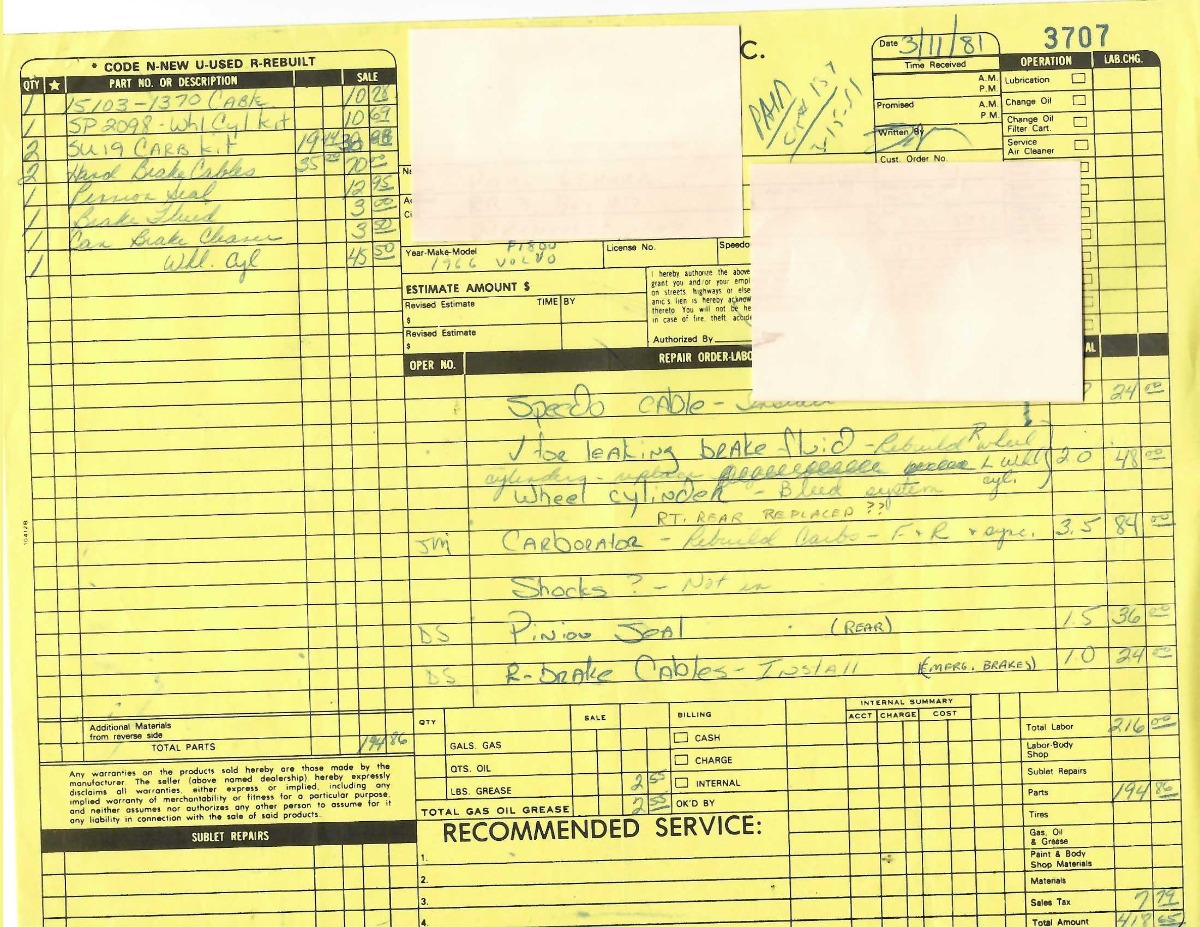 * CODE N-NEW U-USED R-REBUILT
QTY ★ PART NO. OR DESCRIPTION SALE
1 15103-1370 Cable 10 28
1 SP 2098-Whl Cyl kit 10 67
2 SU19 CARB Kit 19 44
2 Hand Brake Cables 35 00 70 00
1 Pinnion Seal 12 95
1 Brake Fluid 3 00
1 Can Brake Cleaner 3 50
1 Whl. Cyl 45 50
C.
PAID
Date 3/11/81
3707
Time Received
A.M.
P.M.
Promised
A.M.
P.M.
Written By
Cust. Order No.
OPERATION LAB.CHG.
Lubrication
Change Oil
Change Oil
Filter Cart.
Service
Air Cleaner
Year-Make-Model P1800
1966 VOLVO
License No.
Speedo
ESTIMATE AMOUNT $
Revised Estimate TIME BY
$
Revised Estimate
$
I hereby authorize the above
grant you and/or your empl
on streets, highways or else
anic's lien is hereby acknow
thereto. You will not be he
in case of fire, theft, accide
Authorized By
OPER NO. REPAIR ORDER-LABO AL
Speedo CABle - Install 24 00
√ for leaking brake fluid - Rebuild R wheel
cylinder - replace L whl 2.0 48 00
Wheel cylinder - Bleed system cyl.
RT. REAR REPLACED ??
JM CARBORATOR - Rebuild Carbs - F + R + sync. 3.5 84 00
Shocks ? - Not in
DS Pinion Seal (REAR) 1.5 36 00
DS R-BrAke CAbles - Install (EMERG. BRAKES) 1.0 24 00
10-4128
Additional Materials
from reverse side
TOTAL PARTS 194 86
Any warranties on the products sold hereby are those made by the
manufacturer. The seller (above named dealership) hereby expressly
disclaims all warranties, either express or implied, including any
implied warranty of merchantability or fitness for a particular purpose,
and neither assumes nor authorizes any other person to assume for it
any liability in connection with the sale of said products.
SUBLET REPAIRS
QTY SALE BILLING
GALS. GAS CASH
QTS. OIL CHARGE
LBS. GREASE 2 55 INTERNAL
TOTAL GAS OIL GREASE 2 55 OK'D BY
INTERNAL SUMMARY
ACCT CHARGE COST
RECOMMENDED SERVICE:
1.
2.
3.
4.
Total Labor 216 00
Labor-Body
Shop
Sublet Repairs
Parts 194 86
Tires
Gas, Oil
& Grease
Paint & Body
Shop Materials
Materials
Sales Tax 7 79
Total Amount 418 65